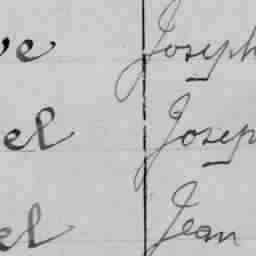 ve Joseph
el Josep
el Jean